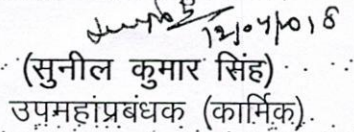 12/04/2018
(सुनील कुमार सिंह)
उपमहाप्रबंधक (कार्मिक)